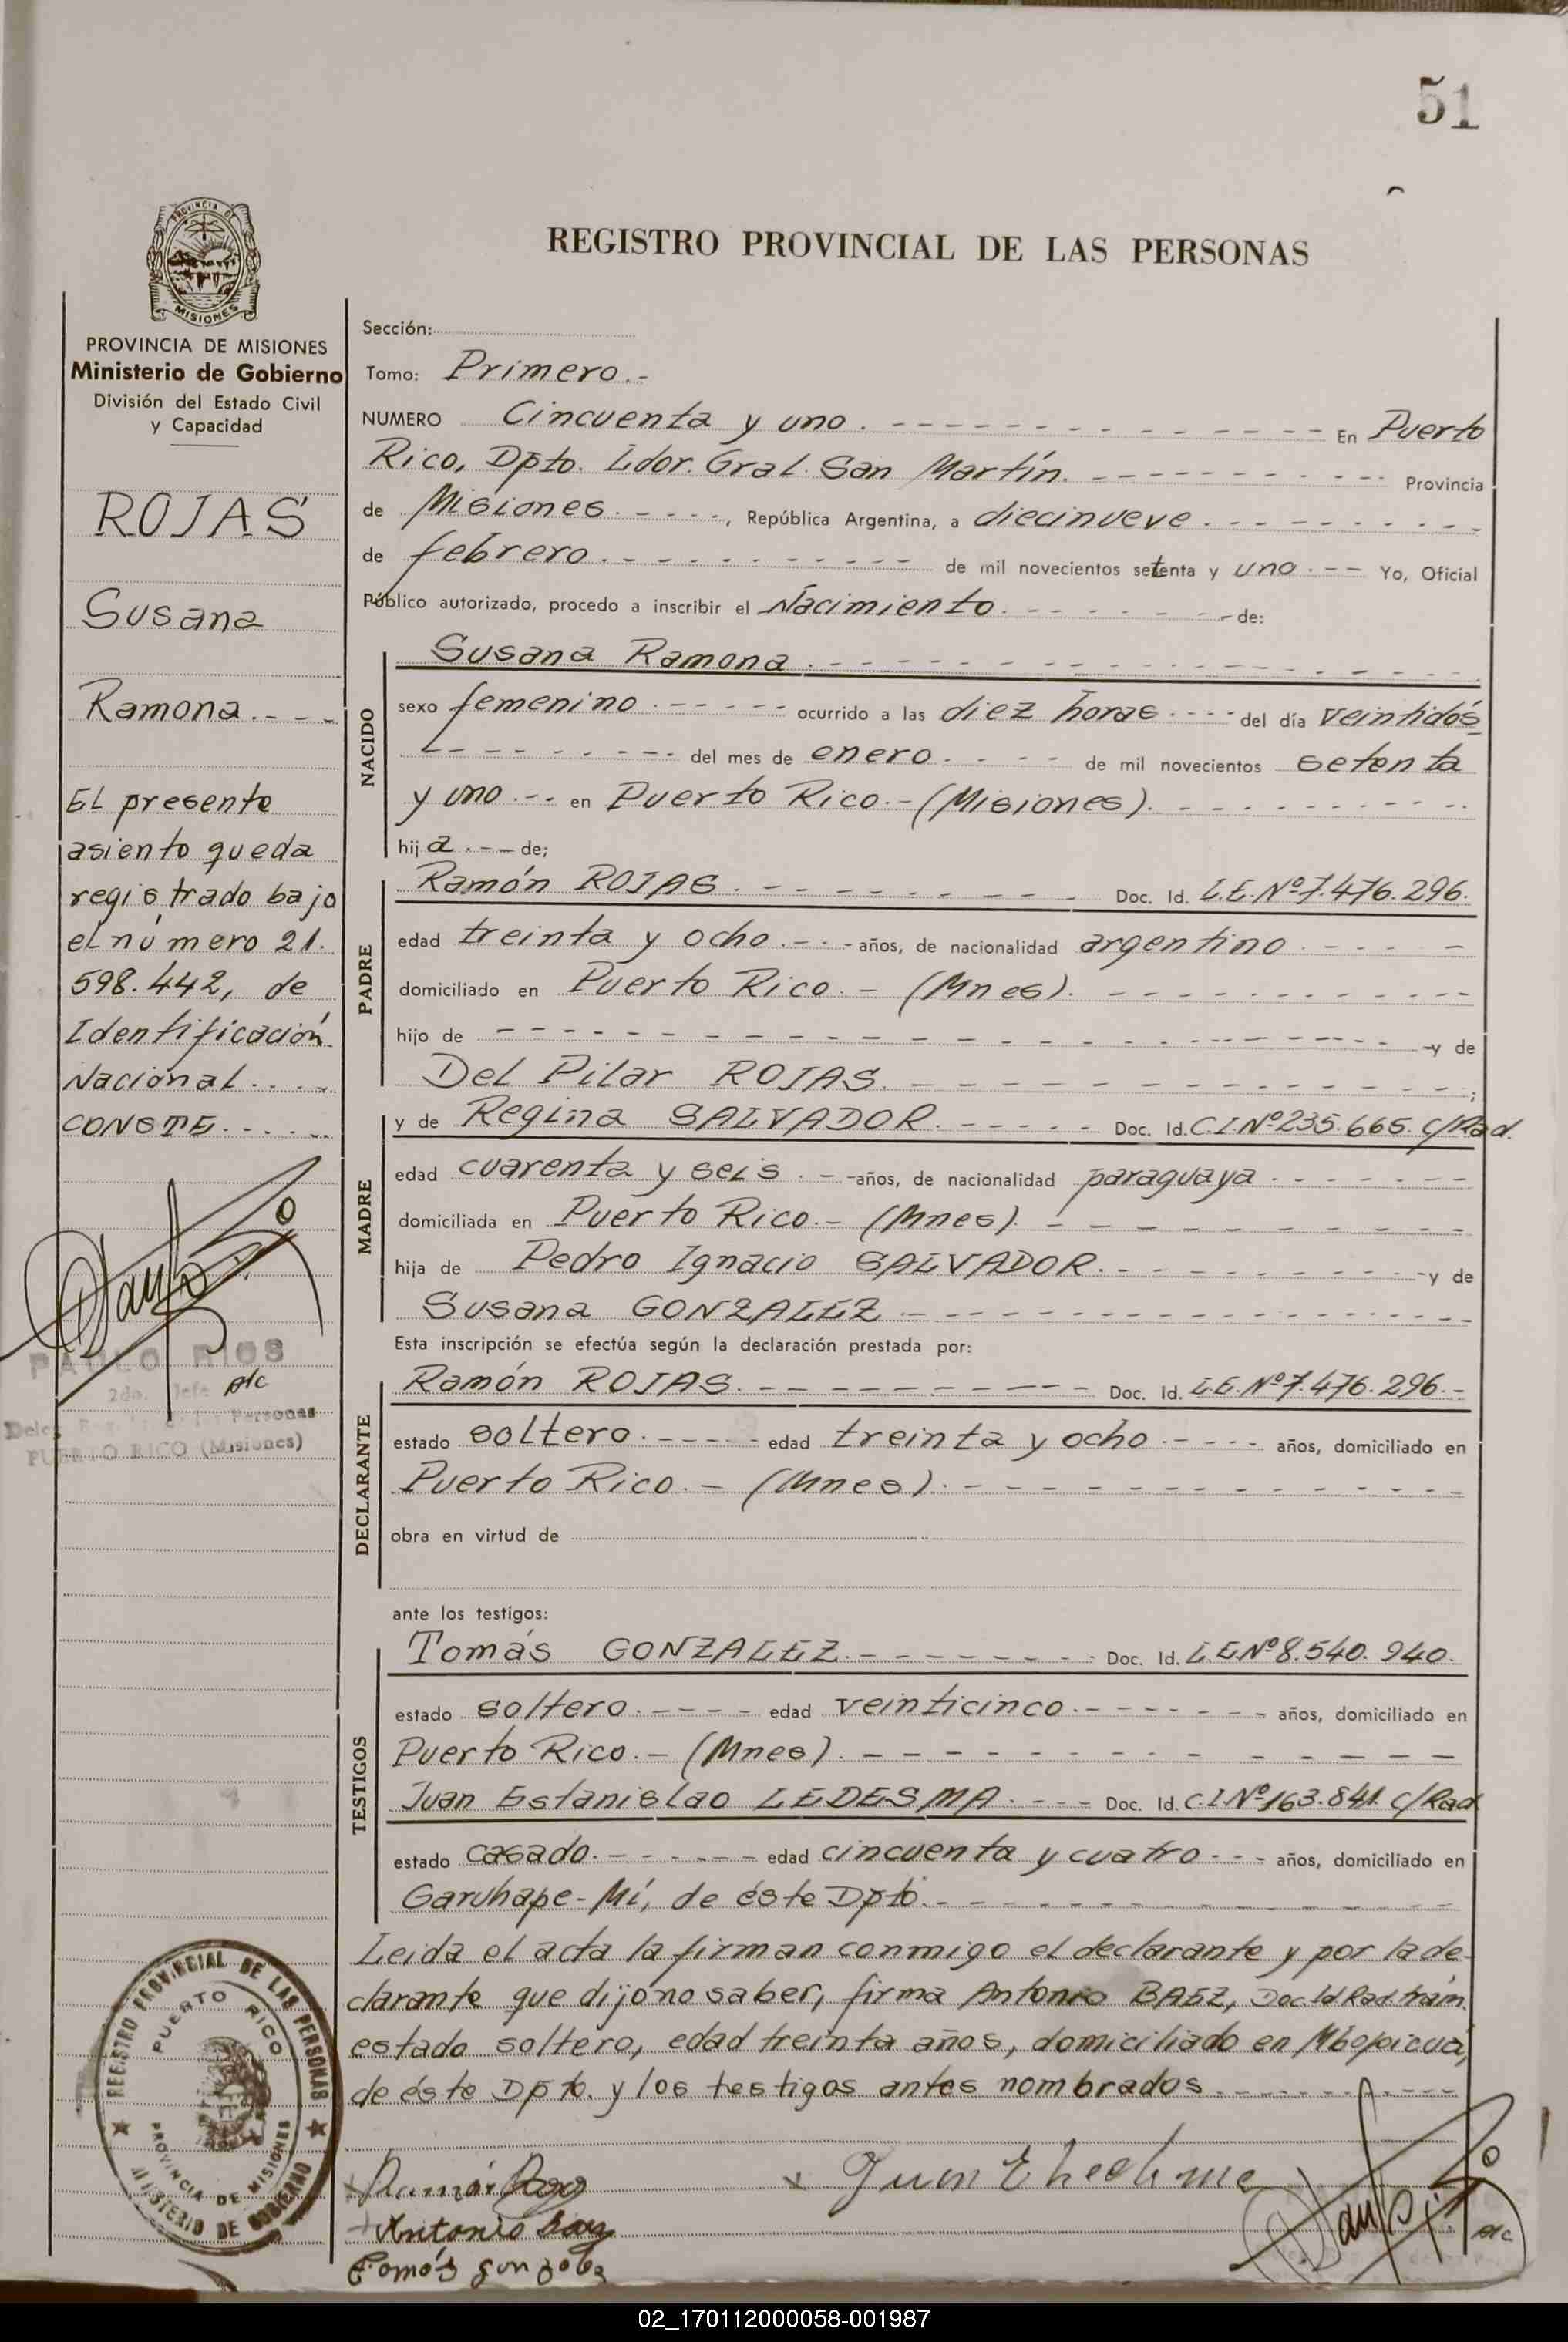 51
REGISTRO PROVINCIAL DE LAS PERSONAS
PROVINCIA DE
MISIONES
PROVINCIA DE MISIONES
Ministerio de Gobierno
División del Estado Civil
y Capacidad
ROJAS
Susana
Ramona.---
El presente
asiento queda
registrado bajo
el número 21.
598.442, de
Identificación
Nacional....
CONSTE.....
PABLO RIOS
2do. Jefe A/c
Personas
PUERTO RICO (Misiones)
REGISTRO PROVINCIAL DE LAS PERSONAS
PUERTO RICO
PROVINCIA DE MISIONES
MINISTERIO DE GOBIERNO
Sección:
Tomo: Primero.-
NUMERO Cincuenta y uno. - - - En Puerto
Rico, Dpto. Ldor. Gral. San Martín. - - - Provincia
de Misiones. - - -, República Argentina, a diecinueve. - - -
de febrero. - - - de mil novecientos setenta y uno. -- Yo, Oficial
Público autorizado, procedo a inscribir el Nacimiento. - - - de:
NACIDO
Susana Ramona. - - -
sexo femenino. - - - ocurrido a las diez horas. - - - del día veintidós
- - - del mes de enero. - - - de mil novecientos setenta
y uno. -- en Puerto Rico.- (Misiones). - - -
hij a. -- de;
PADRE
Ramón ROJAS. - - - Doc. Id. L.E.Nº7.476.296.
edad treinta y ocho. - - - años, de nacionalidad argentino. - - -
domiciliado en Puerto Rico.- (Mnes). - - -
hijo de - - - y de
Del Pilar ROJAS. - - - ;
MADRE
y de Regina SALVADOR. - - - Doc. Id. C.I.Nº235.665. c/Rad.
edad cuarenta y seis. - - años, de nacionalidad paraguaya. - - -
domiciliada en Puerto Rico.- (Mnes). - - -
hija de Pedro Ignacio SALVADOR. - - - y de
Susana GONZALEZ. - - -
Esta inscripción se efectúa según la declaración prestada por:
DECLARANTE
Ramón ROJAS. - - - Doc. Id. L.E.Nº7.476.296.-
estado soltero. - - - edad treinta y ocho. - - - años, domiciliado en
Puerto Rico.- (Mnes). - - -
obra en virtud de
ante los testigos:
TESTIGOS
Tomás GONZALEZ. - - - Doc. Id. L.E.Nº8.540.940.
estado soltero. - - - edad veinticinco. - - - años, domiciliado en
Puerto Rico.- (Mnes). - - -
Juan Estanislao LEDESMA. - - - Doc. Id. C.I.Nº163.841. c/Rad
estado casado. - - - edad cincuenta y cuatro. - - - años, domiciliado en
Garuhape-Mí, de éste Dpto. - - -
Leida el acta la firman conmigo el declarante y por la de-
clarante que dijo no saber, firma Antonio BAEZ, Doc Id Rad. trám.
estado soltero, edad treinta años, domiciliado en Mbopicuá,
de éste Dpto. y los testigos antes nombrados. - - -
Antonio Baez
Tomás
A/c
02_170112000058-001987